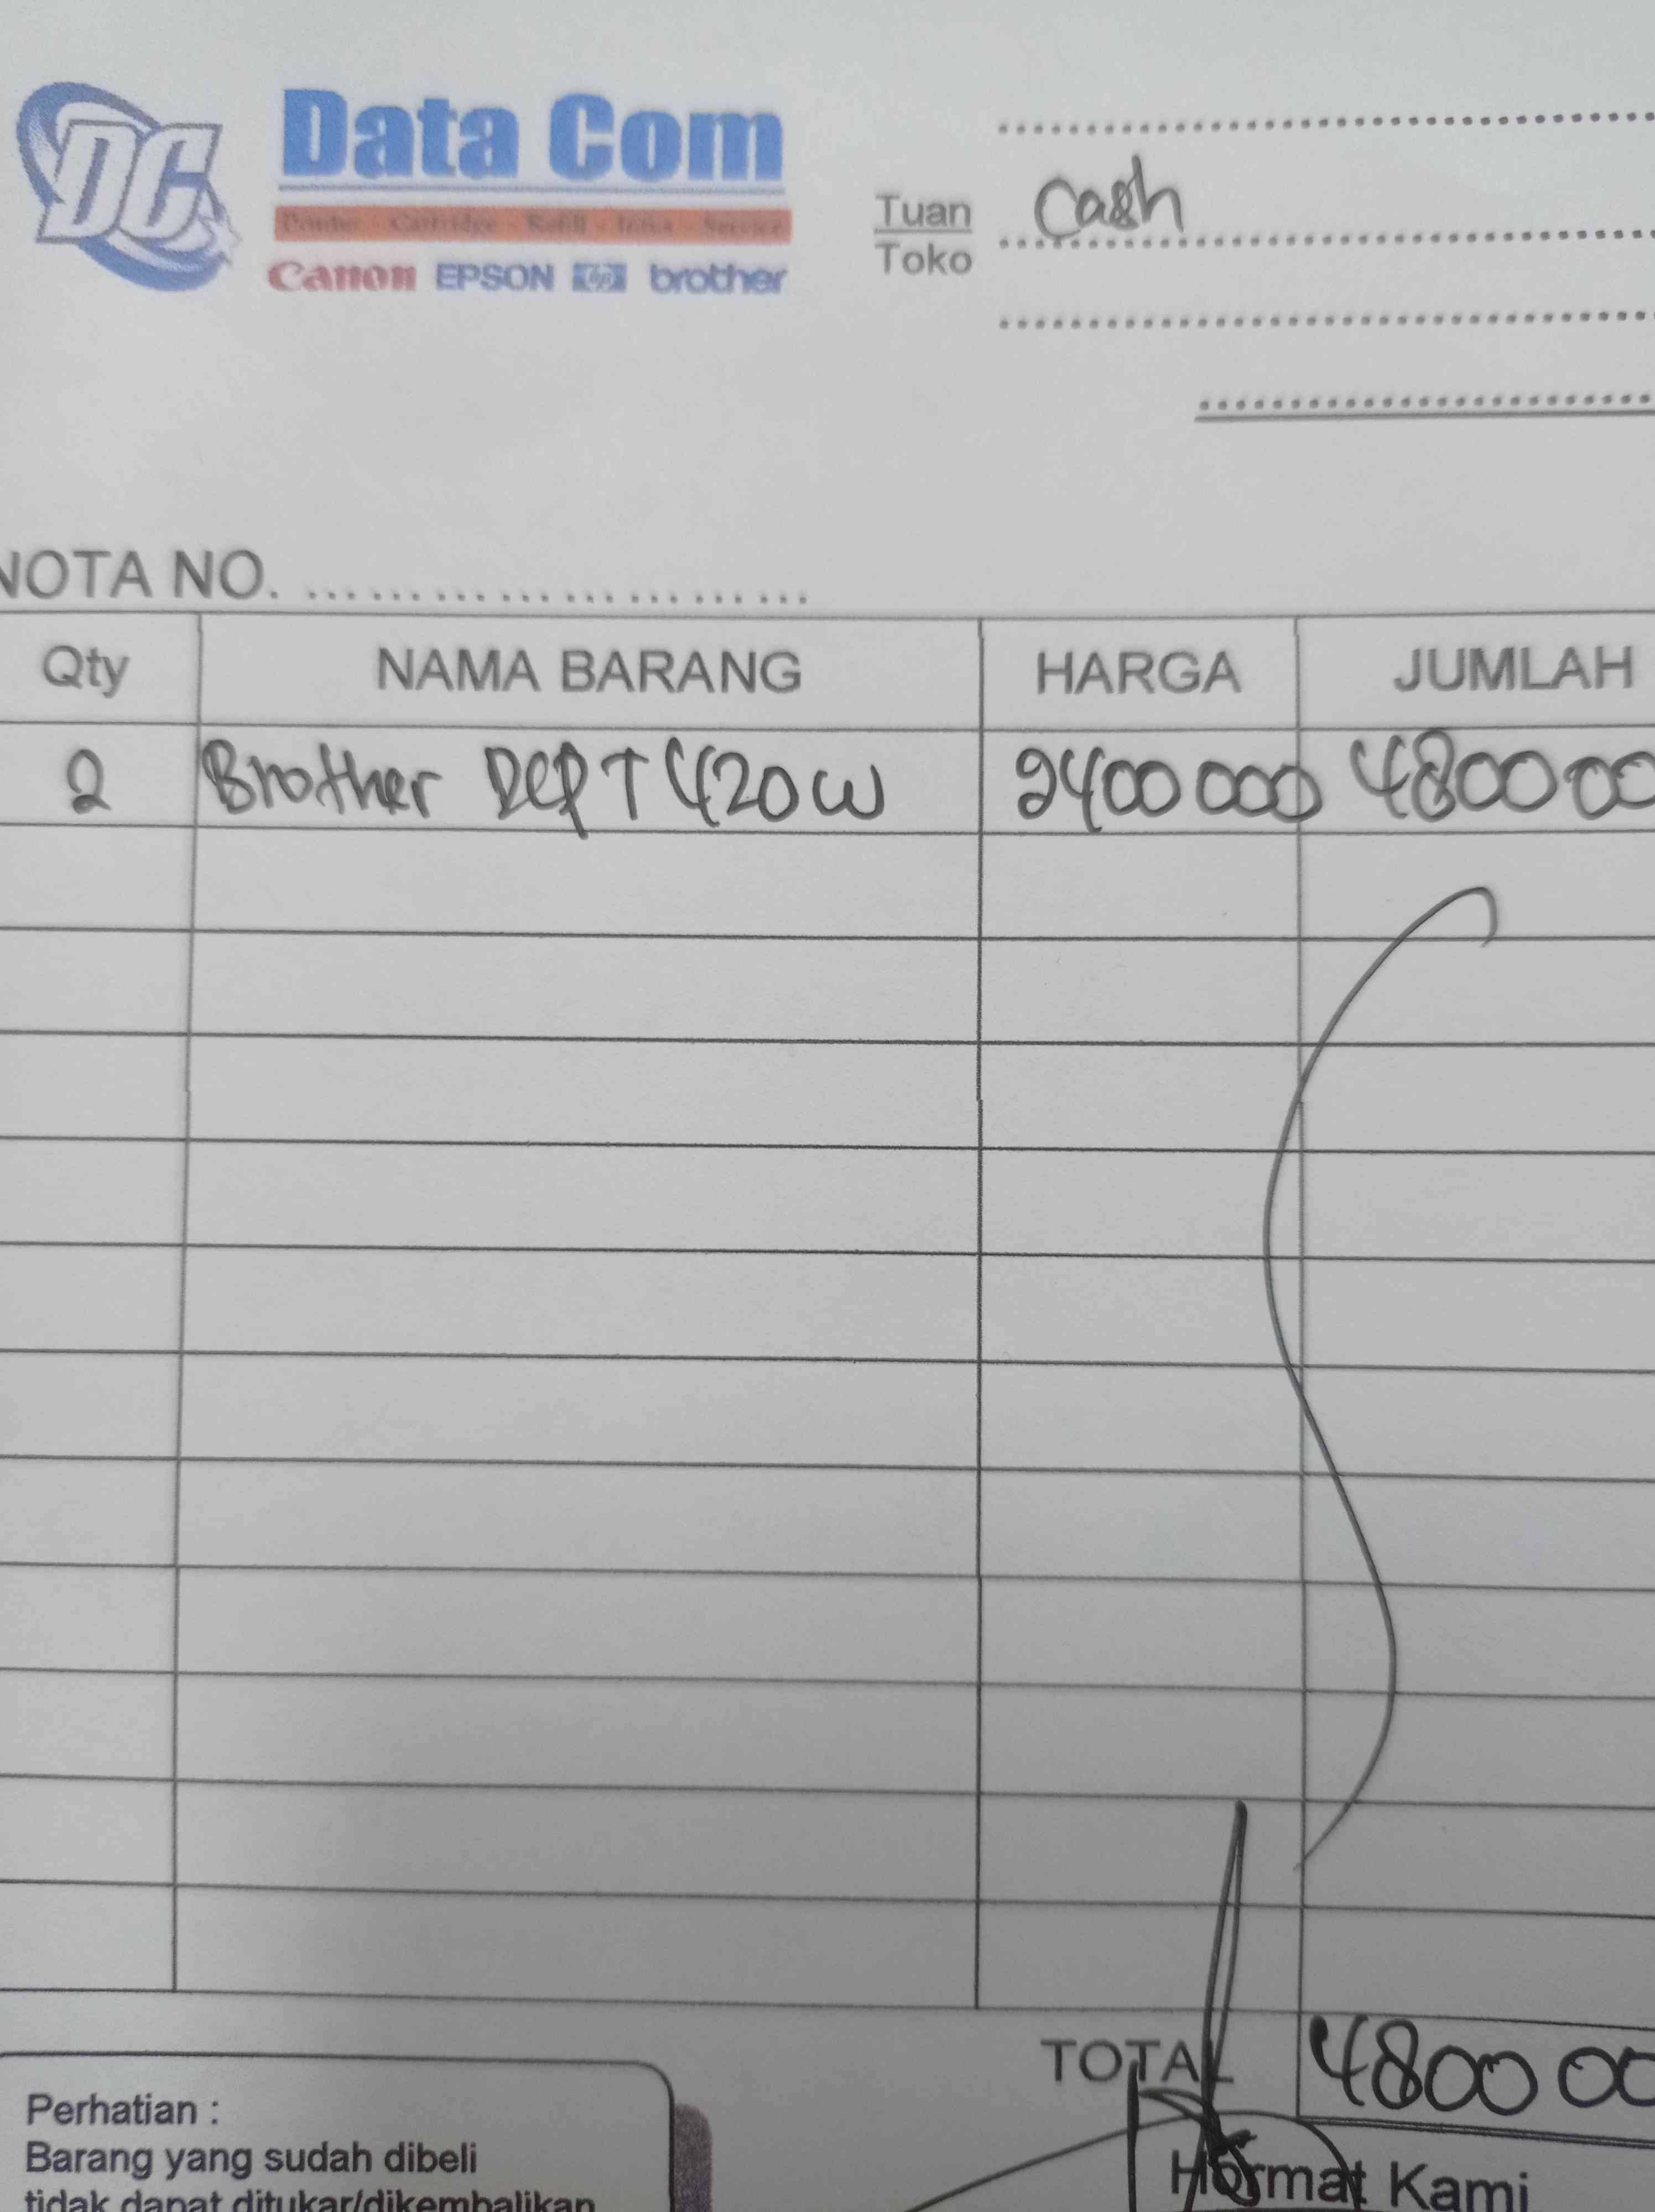 DC
Data Com
Printer - Cartridge - Refill - Infus - Service
Canon EPSON hp brother
Tuan
Toko
Cash
NOTA NO.
Qty NAMA BARANG HARGA JUMLAH
2 Brother DCP T420W 2400 000 4800 00
TOTAL 4800 00
Perhatian :
Barang yang sudah dibeli
tidak dapat ditukar/dikembalikan
Hormat Kami